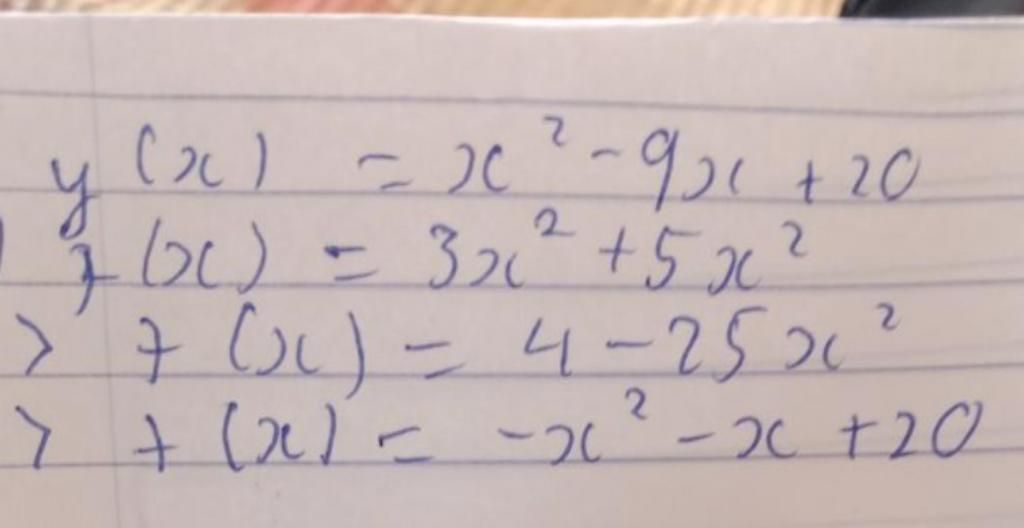 y(x) = x² - 9x + 20
f(x) = 3x² + 5x²
> f(x) = 4 - 25x²
> f(x) = -x² - x + 20